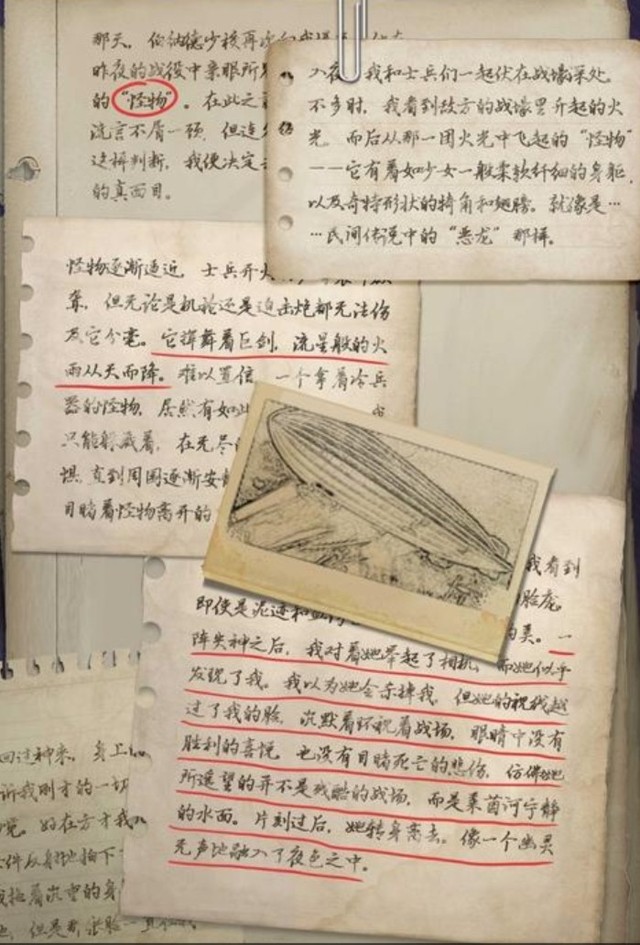 那天，伯纳德少校再次向我
昨夜的战役中亲眼所
的“怪物”。在此之
流言不屑一顾，但连
这样判断，我便决定
的真面目。
入夜，我和士兵们一起伏在战壕深处。
不多时，我看到敌方的战壕里升起的火
光，而后从那一团火光中飞起的“怪物”
——它有着如少女一般柔软纤细的身躯，
以及奇特形状的犄角和翅膀。就像是…
…民间传说中的“恶龙”那样。
怪物逐渐逼近，士兵开火
弃，但无论是机枪还是迫击炮都无法伤
及它分毫。它挥舞着巨剑，流星般的火
雨从天而降。难以置信，一个拿着冷兵
器的怪物，居然有如此
只能躲藏着，在无尽的
惧，直到周围逐渐安静
目睹着怪物离开的
我看到
脸庞。
即使是泥迹和
灵。一
阵失神之后，我对着她举起了相机，而她似乎
发现了我。我以为她会杀掉我，但她的视线越
过了我的脸，沉默着环视着战场，眼睛中没有
胜利的喜悦，也没有目睹死亡的悲伤，仿佛她
所遥望的并不是残酷的战场，而是莱茵河宁静
的水面。片刻过后，她转身离去。像一个幽灵
无声地融入了夜色之中。
回过神来，身上
诉我刚才的一切
她在方才我
件反射地拍下
我拖着沉重的身
但是那张脸一直